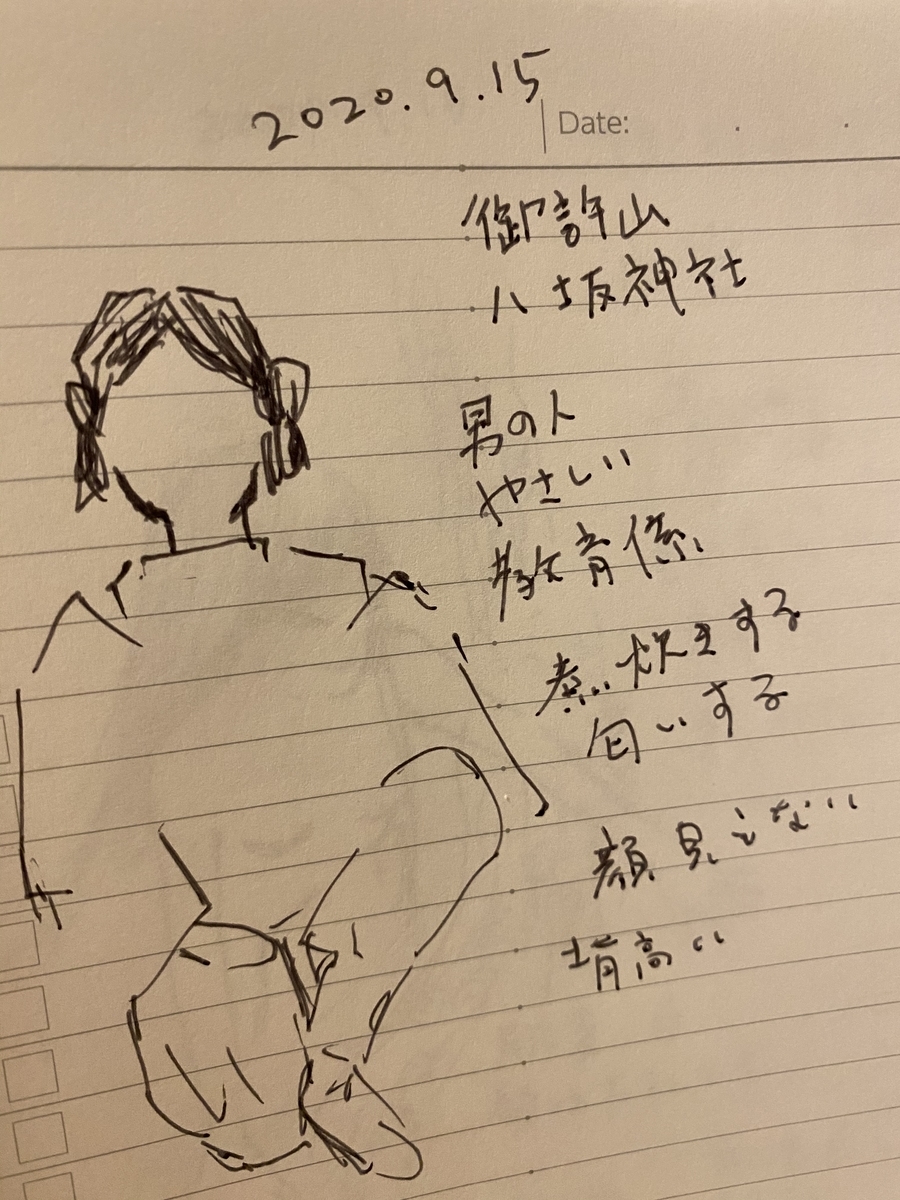 2020.9.15
Date:
御許山
八坂神社
男の人
やさしい
教育係
煮炊きする
匂いする
顔見えない
背高い